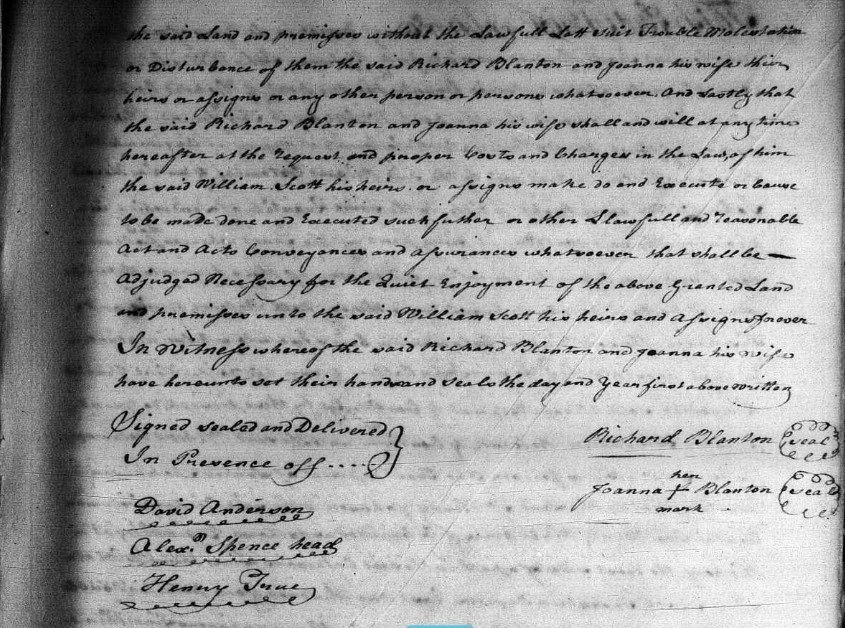 the said Land and premisses without the Lawfull Lett Suit Trouble Molestation
or Disturbance of them the said Richard Blanton and Joanna his wife thier
heirs or assigns or any other person or persons whatsoever. And Lastly that
the said Richard Blanton and Joanna his wife shall and will at any time
hereafter at the request and proper Costs and Charges in the Law, of him
the said William Scott his heirs or assigns make do and Execute or Cause
to be made done and Executed such futher or other Llawfull and reasonable
Act and Acts Conveyances and assurances whatsoever that shall be —
Adjudged Necessary for the Quiet Enjoyment of the above Granted Land
and premisses unto the said William Scott his heirs and Assigns forever
In Witness whereof the said Richard Blanton and Joanna his Wife
have hereunto set their hands and Seals the day and Year first above written
Signed sealed and Delivered }
In Presence off .... }
Richard Blanton (seal)
her
Joanna + Blanton (seal)
mark
David Anderson
Alexr. Spence head
Henry True